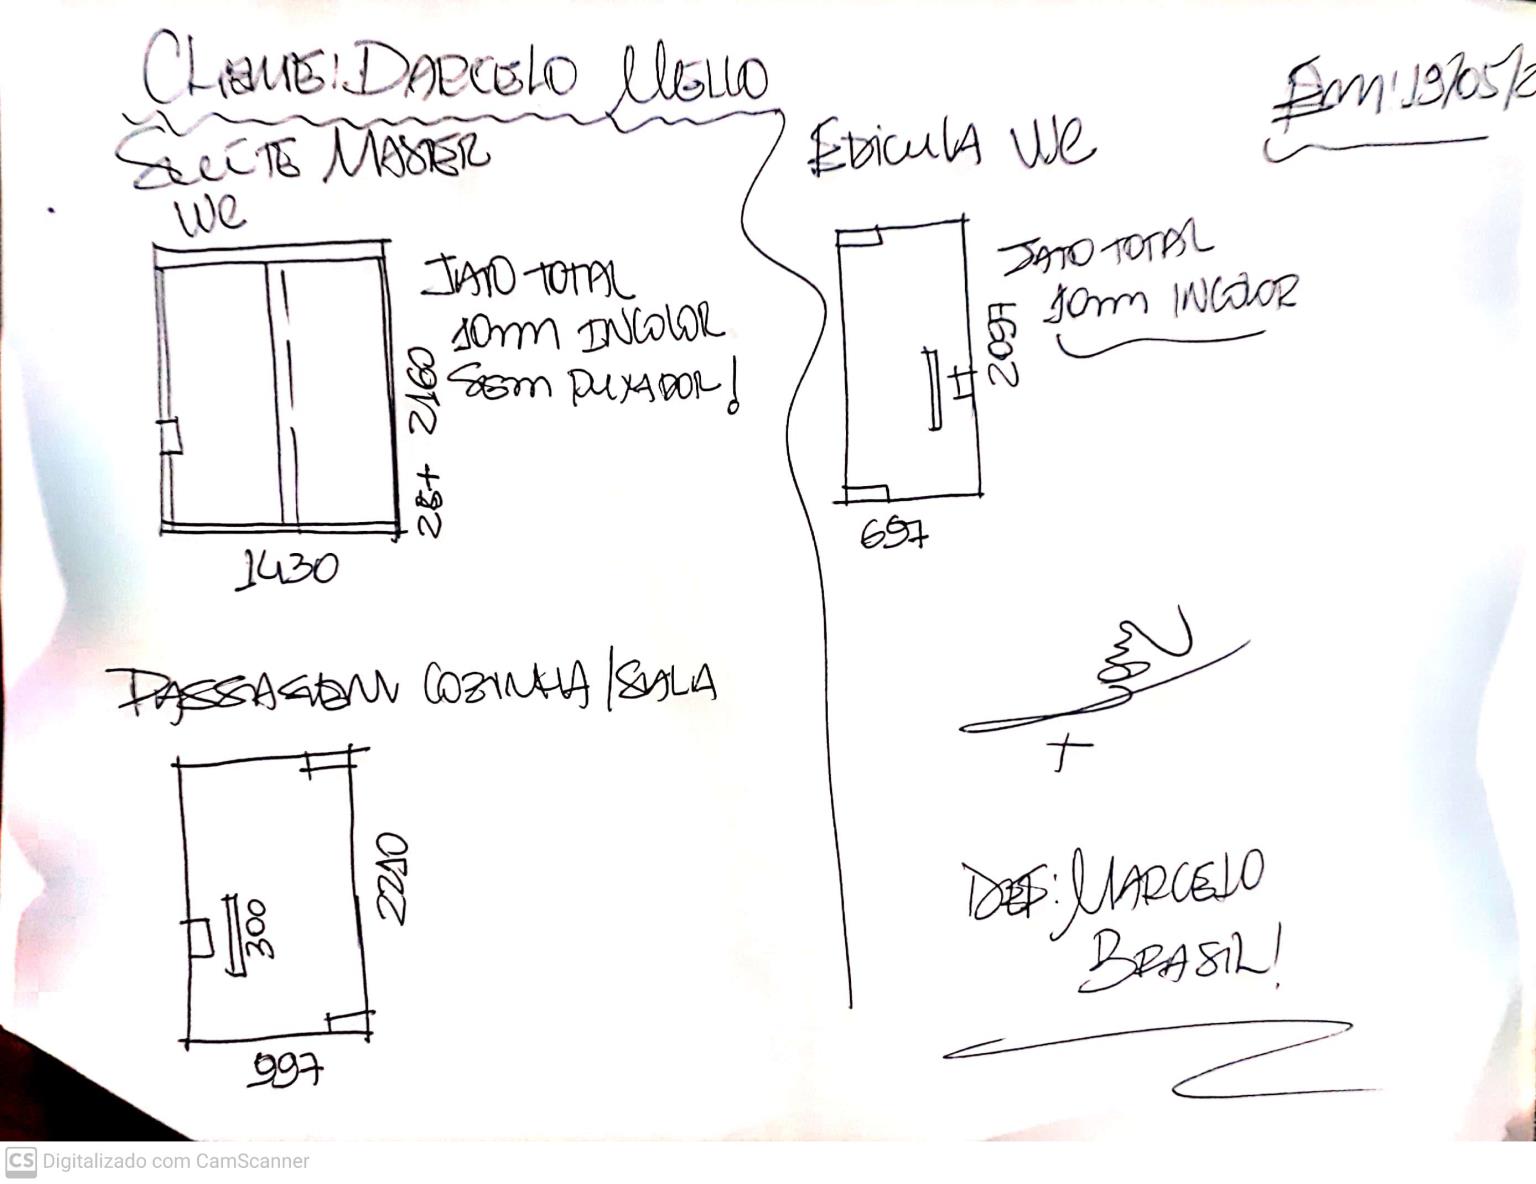 CLIENTE: DARCELO MELLO
Em: 19/05/2
SUÍTE MASTER
WC
JATO TOTAL
10mm INCOLOR
SEM PUXADOR!
28+ 2160
1430
EDICULA WC
JATO TOTAL
10mm INCOLOR
2097
697
PASSAGEM COZINHA/SALA
300
2210
997
MARCELO
BRASIL!
CS Digitalizado com CamScanner